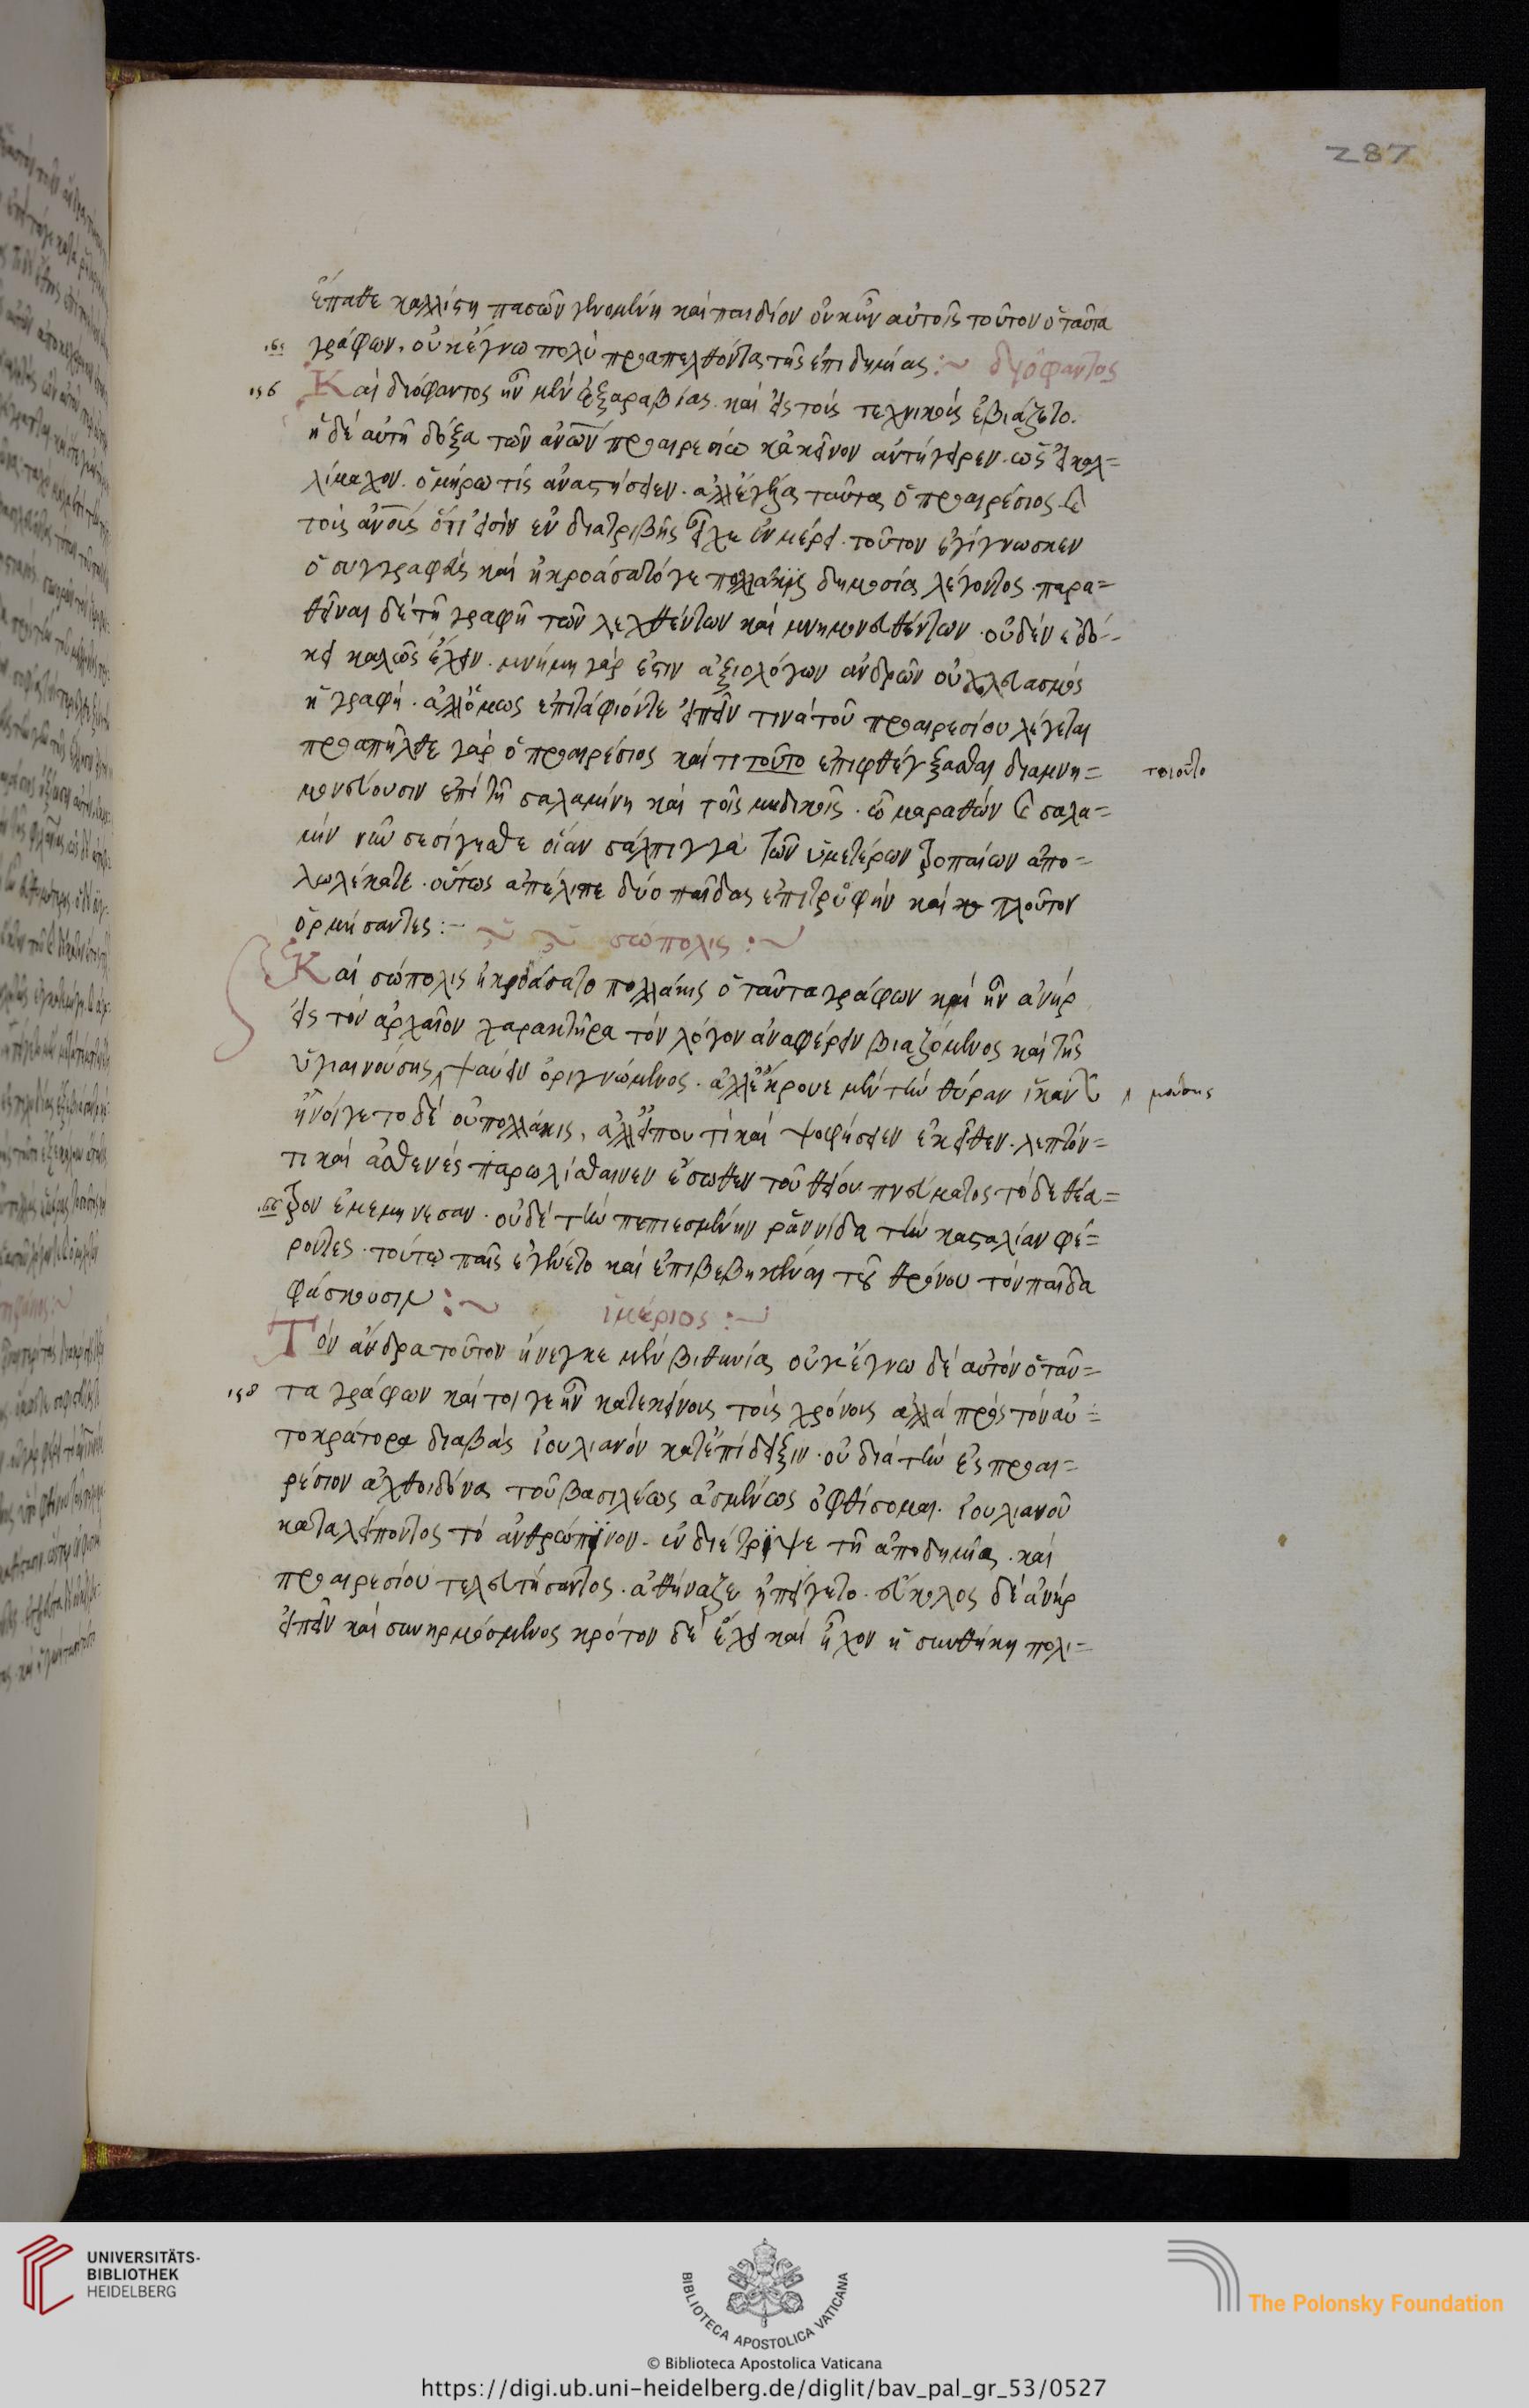 287
ἔπαθε καλλίστη πασῶν γενομένη καὶ παιδίον οὐκ ἦν αὐτοῖς τοῦτον ὁ ταῦτα
γράφων. οὐκ ἔγνω πολὺ προαπελθόντας τῆς ἐπιδημίας :~ διόφαντος
156 Καὶ διόφαντος ἦν μὲν ἐξαραβίας. καὶ εἰς τοὺς τεχνικοὺς ἐβιάζετο.
ἡ δὲ αὐτὴ δόξα τῶν ἀνων προαιρεσίω κἀκεῖνον ἀντήγειρεν. ὡς εἰ καλ=
λίμαχον. ὁμήρω τίς ἀναστήσειεν. ἀλλ ἐγέλα ταῦτα ὁ προαιρέσιος καὶ
τοὺς ἀνους ὅτι εἰσὶν ἐν διατριβῆς εἶχε ἐν μέρει. τοῦτον ἐγίγνωσκεν
ὁ συγγραφεὺς καὶ ἠκροάσατό γε πολλάκις δημοσία λέγοντος. παρα=
θεῖναι δὲ τῇ γραφῇ τῶν λεχθέντων καὶ μνημονευθέντων. οὐδὲν ἐδό-
κει καλῶς ἔχειν. μνήμη γάρ ἐστιν ἀξιολόγων ἀνδρῶν οὐ χλευασμὸς
ἡ γραφή. ἀλλ ὅμως ἐπιτάφιόν τε εἰπεῖν τινὰ τοῦ προαιρεσίου λέγεται
προαπῆλθε γὰρ ὁ προαιρέσιος καί τι τοῦτο ἐπιφθέγξασθαι διαμνη= τοιοῦτο
μονεύουσιν ἐπὶ τῇ σαλαμίνη καὶ τοῖς μηδικοῖς. ὦ μαραθὼν καὶ σαλα=
μὶν νῦν σεσίγησθε οἵαν σάλπιγγα τῶν ὑμετέρων τροπαίων ἀπο=
λωλέκατε. οὕτως ἀπέλιπε δύο παῖδας ἐπὶ τρυφὴν καὶ πλοῦτον
ὁρμήσαντες :~ σώπολις :~
Καὶ σώπολις ἠκροάσατο πολλάκις ὁ ταῦτα γράφων καὶ ἦν ἀνὴρ
εἰς τὸν ἀρχαῖον χαρακτῆρα τὸν λόγον ἀναφέρειν βιαζόμενος καὶ τῆς
ὑγιαινούσης ψαύειν ὀριγνώμενος. ἀλλ ἔκρουε μὲν τὴν θύραν ἱκανῶς μούσης
ἠνοίγετο δὲ οὐ πολλάκις, ἀλλ εἴ που τὶ καὶ ψοφήσειεν ἐκεῖθεν. λεπτόν=
τι καὶ ἀσθενὲς παρωλίσθαινεν ἔσωθεν τοῦ θείου πνεύματος τὸ δὲ θέα=
τρον ἐμεμήνεσαν. οὐδὲ τὴν πεπιεσμένην ῥαννίδα τὴν κασταλίαν φέ=
ροντες. τούτω παῖς ἐγένετο καὶ ἐπιβεβηκέναι τοῦ θρόνου τὸν παῖδα
φάσκουσιν :~ ἱμέριος :~
Τὸν ἄνδρα τοῦτον ἤνεγκε μὲν βιθυνία, οὐκ ἔγνω δὲ αὐτὸν ὁ ταῦ=
158 τα γράφων καί τοι γε ἦν κατεκείνους τοὺς χρόνους ἀλλὰ πρὸς τὸν αὐ=
τοκράτορα διαβὰς ἰουλιανὸν κατ ἐπίδειξιν. οὐ διὰ τὴν ἐς προαι=
ρέσιον ἀχθηδόνα τοῦ βασιλέως ἀσμένως ὀφθίσομαι. ἰουλιανοῦ
καταλείποντος τὸ ἀνθρώπινον. ἐν διέτριψε τῇ ἀποδημίᾳ. καὶ
προαιρεσίου τελευτήσαντος. ἀθήναζε ἠπείγετο. εὔκολος δὲ ἀνὴρ
εἰπεῖν καὶ συνηρμόσμένος κρότον δὲ ἔχει καὶ ἦχον ἡ συνθήκη πολι=
UNIVERSITÄTS-
BIBLIOTHEK
HEIDELBERG
BIBLIOTECA APOSTOLICA VATICANA
The Polonsky Foundation
© Biblioteca Apostolica Vaticana
https://digi.ub.uni-heidelberg.de/diglit/bav_pal_gr_53/0527